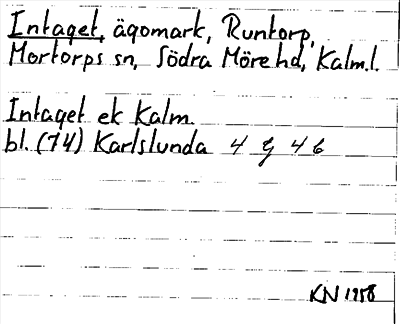 Intaget, ägomark, Runtorp,
Mortorps sn, Södra Möre hd, Kalm.l.
Intaget ek Kalm.
bl. (74) Karlslunda 4 g 46
KN 1958